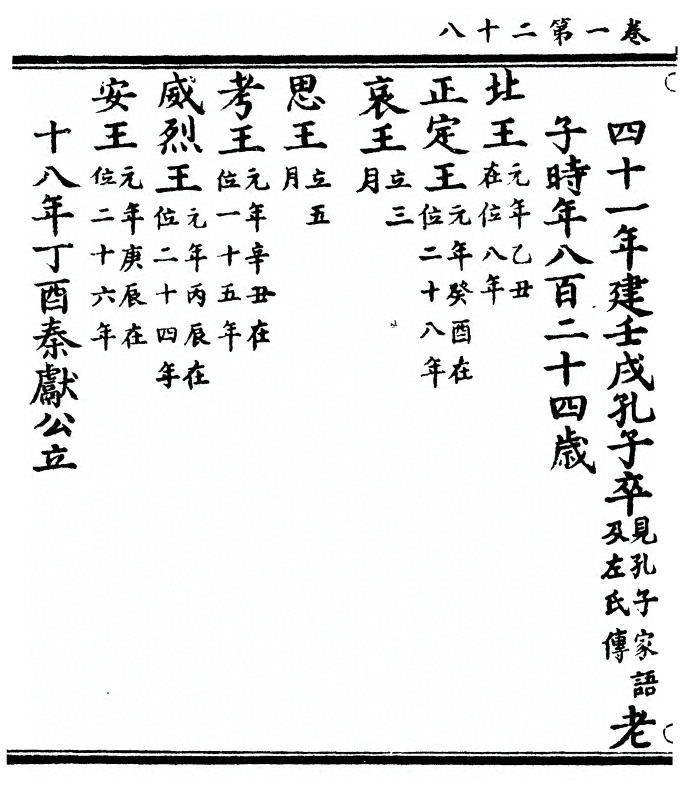 卷一第二十八
四十一年建壬戌孔子卒見孔子家語及左氏傳老
子時年八百二十四歳
北王元年乙丑在位八年
正定王元年癸酉在位二十八年
哀王立三月
思王立五月
考王元年辛丑在位一十五年
威烈王元年丙辰在位二十四年
安王元年庚辰在位二十六年
十八年丁酉秦獻公立